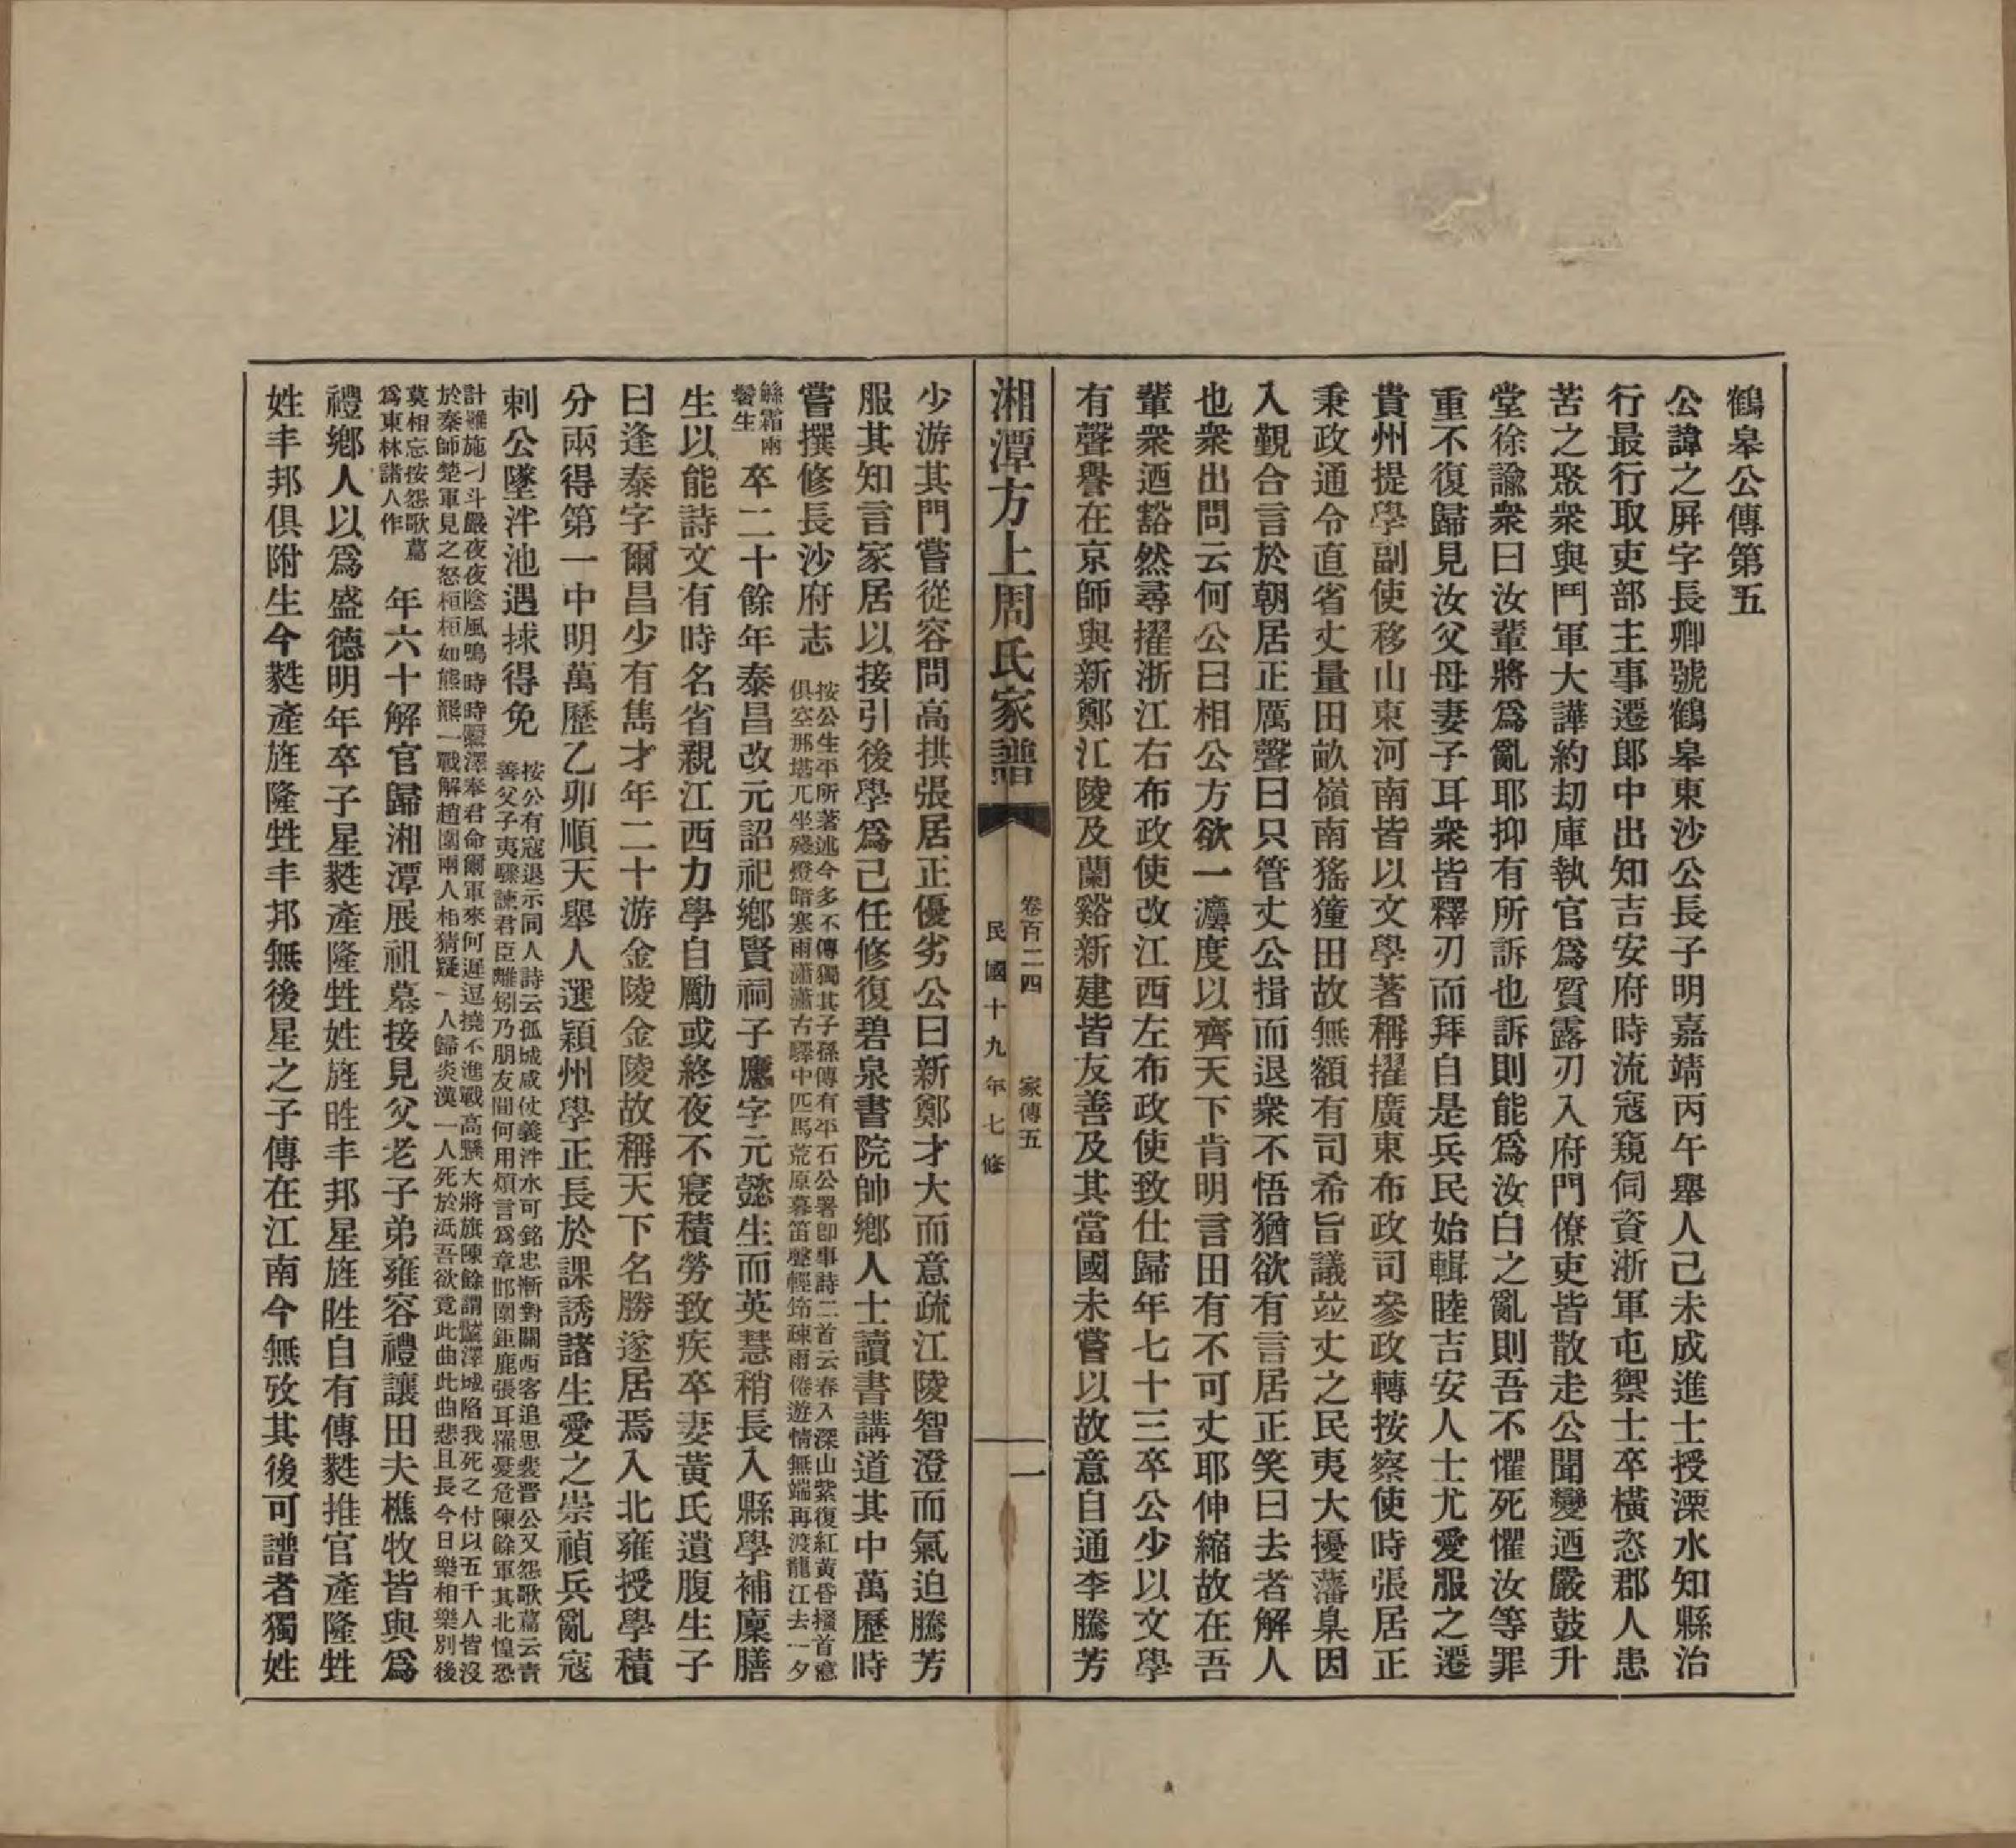 鶴皋公傳第五
公諱之屏字長卿號鶴皋東沙公長子明嘉靖丙午舉人己未成進士授溧水知縣治
行最行取吏部主事遷郎中出知吉安府時流寇窺伺資浙軍屯禦士卒橫恣郡人患
苦之聚衆與鬥軍大譁約劫庫執官爲質露刃入府門僚吏皆散走公聞變迺嚴鼓升
堂徐諭衆曰汝輩將爲亂耶抑有所訴也訴則能爲汝白之亂則吾不懼死懼汝等罪
重不復歸見汝父母妻子耳衆皆釋刃而拜自是兵民始輯睦吉安人士尤愛服之遷
貴州提學副使移山東河南皆以文學著稱擢廣東布政司參政轉按察使時張居正
秉政通令直省丈量田畝嶺南猺獞田故無額有司希旨議竝丈之民夷大擾藩臬因
入覲合言於朝居正厲聲曰只管丈公揖而退衆不悟猶欲有言居正笑曰去者解人
也衆出問云何公曰相公方欲一灋度以齊天下肯明言田有不可丈耶伸縮故在吾
輩衆迺豁然尋擢浙江右布政使改江西左布政使致仕歸年七十三卒公少以文學
有聲譽在京師與新鄭江陵及蘭谿新建皆友善及其當國未嘗以故意自通李騰芳
湘潭方上周氏家譜
卷百二四 家傳五
民國十九年七修
一
少游其門嘗從容問高拱張居正優劣公曰新鄭才大而意疏江陵智澄而氣迫騰芳
服其知言家居以接引後學爲己任修復碧泉書院帥鄉人士讀書講道其中萬歷時
嘗撰修長沙府志
按公生平所著述今多不傳獨其子孫傳有平石公署卽事詩二首云春入深山紫復紅黃昏搔首意
俱空那堪兀坐殘燈暗塞雨瀟瀟古驛中匹馬荒原暮笛聲輕筇疎雨倦遊情無端再渡龍江去一夕
緜霜兩
鬢生
卒二十餘年泰昌改元詔祀鄉賢祠子應字元懿生而英慧稍長入縣學補廩膳
生以能詩文有時名省親江西力學自勵或終夜不寢積勞致疾卒妻黃氏遺腹生子
曰逢泰字爾昌少有雋才年二十游金陵金陵故稱天下名勝遂居焉入北雍授學積
分兩得第一中明萬歷乙卯順天舉人選穎州學正長於課誘諸生愛之崇禎兵亂寇
刺公墜泮池遇捄得免
按公有寇退示同人詩云孤城咸仗義泮水可銘忠漸對關西客追思裴晋公又怨歌篇云責
善父子夷驟諫君臣離矧乃朋友間何用煩言爲章邯圍鉅鹿張耳罹憂危陳餘軍其北惶恐
計難施刁斗嚴夜夜陰風鳴時時黶澤奉君命爾軍來何遲逗撓不進戰高懸大將旗陳餘謂黶澤城陷我死之付以五千人皆沒
於秦師楚軍見之怒桓桓如熊羆一戰解趙圍兩人相猜疑一人歸炎漢一人死於泜吾欲竟此曲此曲悲且長今日樂相樂別後
莫相忘按怨歌篇
爲東林諸人作
年六十解官歸湘潭展祖墓接見父老子弟雍容禮讓田夫樵牧皆與爲
禮鄉人以爲盛德明年卒子星蕤產隆甡姓旌甠丰邦星旌甠自有傳蕤推官產隆甡
姓丰邦俱附生今蕤產旌隆甡丰邦無後星之子傳在江南今無攷其後可譜者獨姓